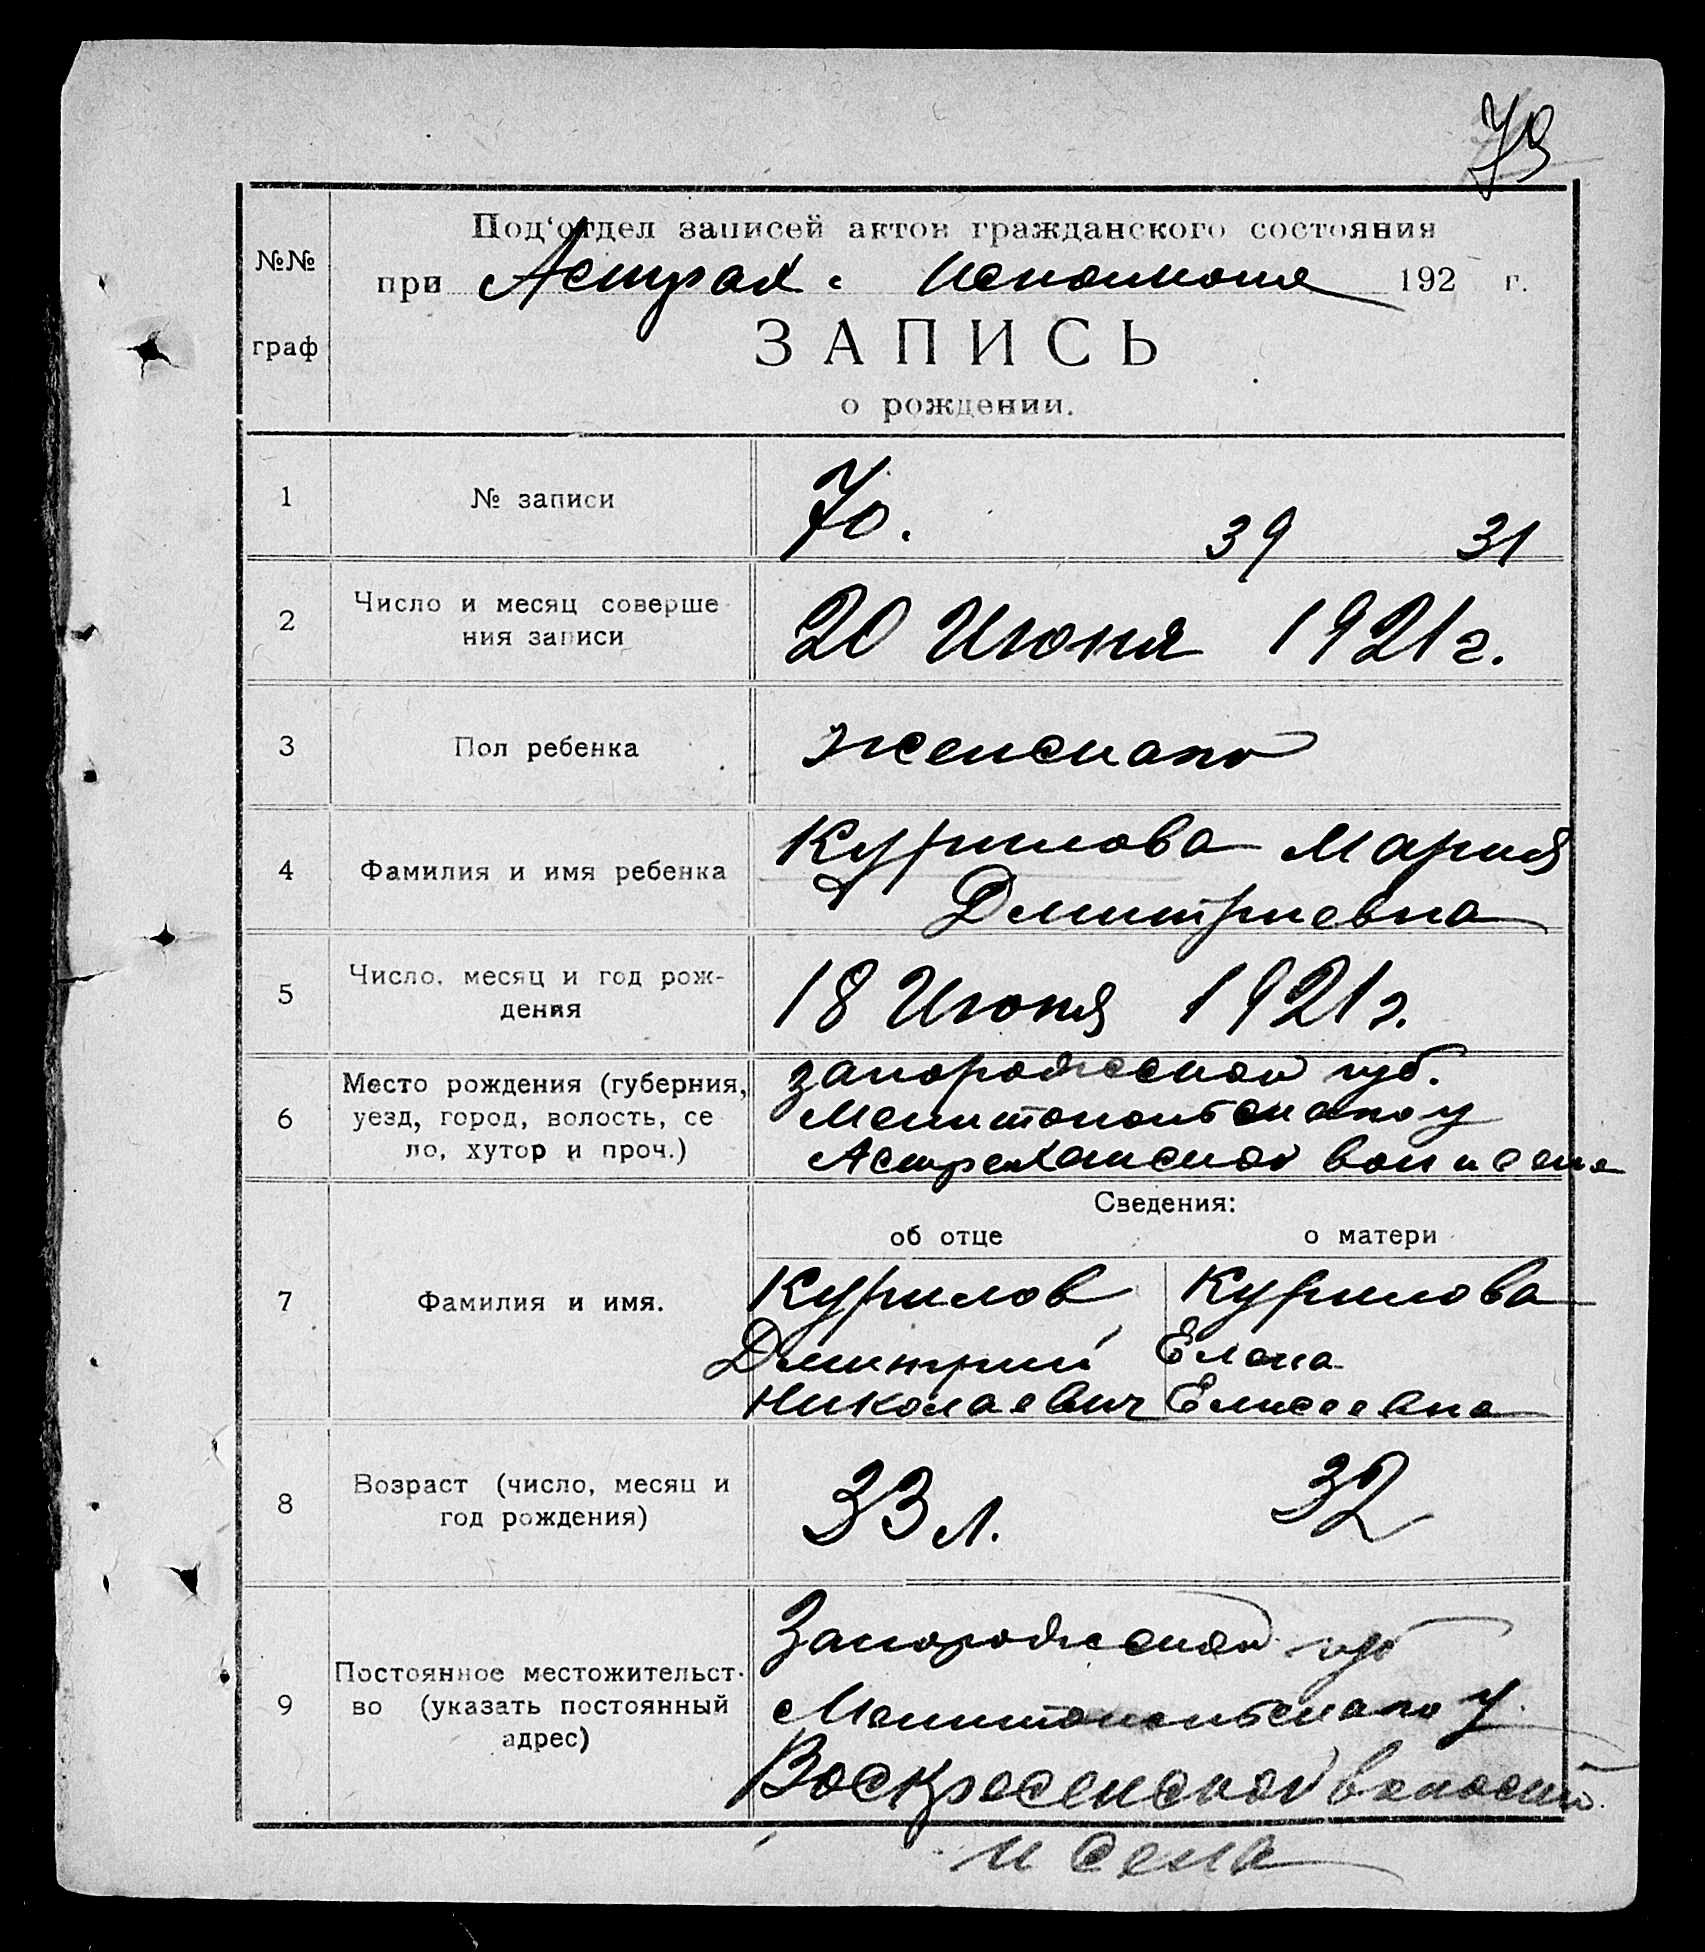 73
№№ граф
Под'отдел записей актов гражданского состояния
при Астрах. Исполкоме 192 г.
ЗАПИСЬ
о рождении.
1 № записи 70. 39 31
2 Число и месяц соверше
ния записи
20 Июня 1921 г.
3 Пол ребенка женскаго
4 Фамилия и имя ребенка
Курилова Мария
Дмитриевна
5 Число, месяц и год рож-
дения
18 Июня 1921 г.
6 Место рождения (губерния,
уезд, город, волость, се
ло, хутор и проч.)
Запорожской губ.
Мелитопольскаго у
Астраханской вол и села
Сведения:
об отце о матери
7 Фамилия и имя.
Курилов
Дмитрий
Николаевич
Курилова
Елена
Елисеевна
8 Возраст (число, месяц и
год рождения)
33 л. 32
9 Постоянное местожительст-
во (указать постоянный
адрес)
Запорожской губ
Мелитопольскаго у.
Воскресенской волости
и села